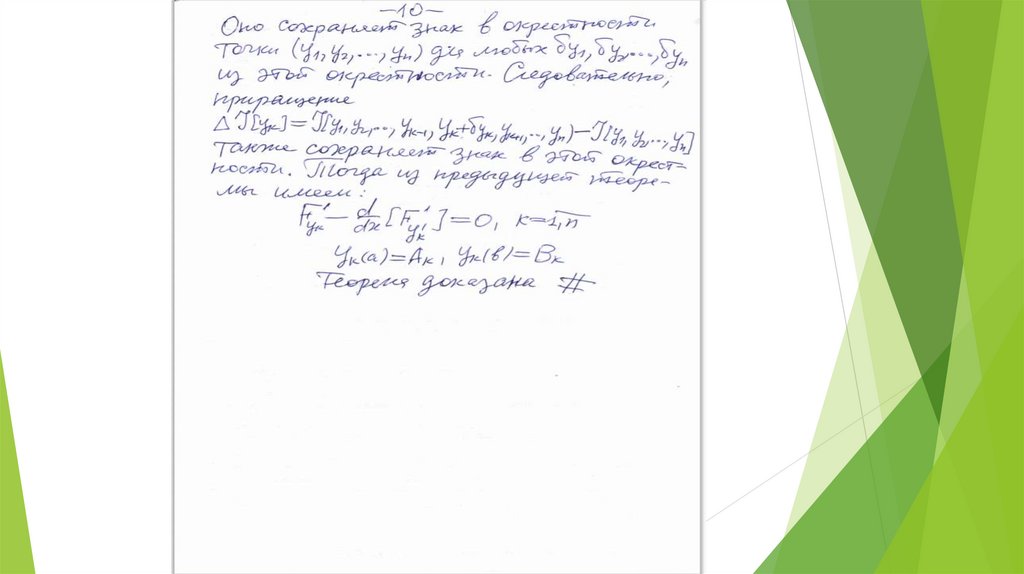 –10–
Оно сохраняет знак в окрестности
точки (y₁, y₂, ..., yₙ) для любых δy₁, δy₂, ..., δyₙ
из этой окрестности. Следовательно,
приращение
ΔJ[yₖ]=J[y₁, y₂, ..., yₖ₋₁, yₖ+δyₖ, yₖ₊₁, ..., yₙ)–J[y₁, y₂, ..., yₙ]
также сохраняет знак в этой окрест=
ности. Тогда из предыдущей теоре-
мы имеем:
F'_{yₖ} – d/dx [F'_{y'ₖ}]=0, к=1,n
yₖ(a)=Aₖ, yₖ(в)=Bₖ
Теорема доказана #